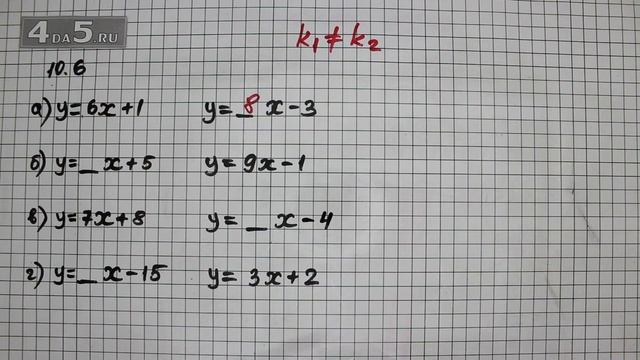 4ДА5.RU
k₁≠k₂
10.6
а) y=6x+1 y=_8_x-3
б) y=_x+5 y=9x-1
в) y=7x+8 y=_x-4
г) y=_x-15 y=3x+2